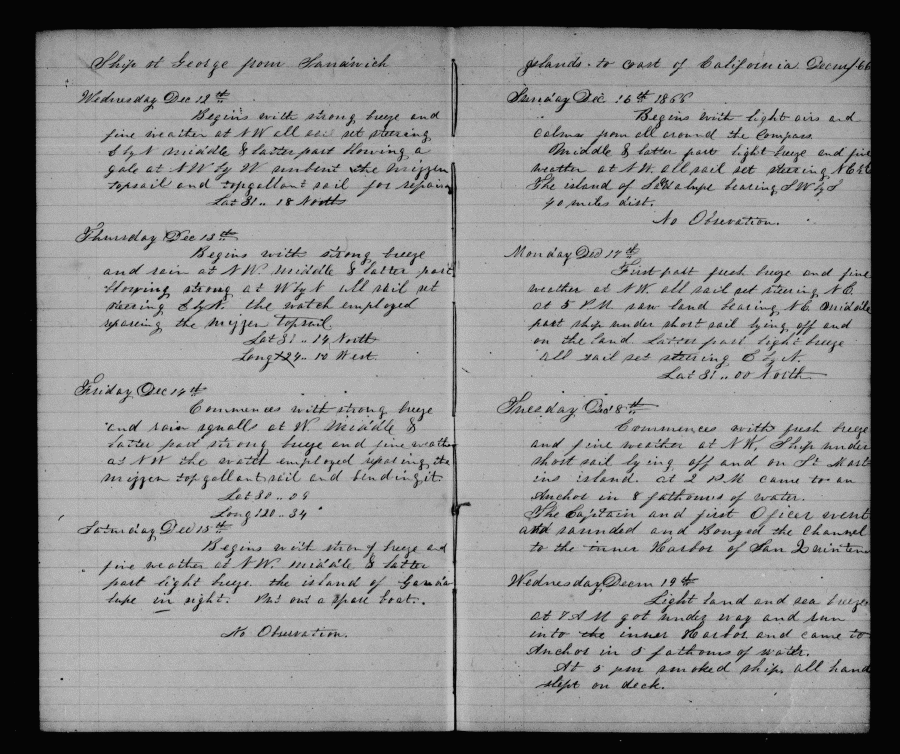 Ship St George from Sandwich
Wednesday Dec 12th
Begins with strong breeze and
fine weather at NW all sail set steering
E by N middle & latter part blowing a
gale at NW by W unbent the mizzen
topsail and topgallant sail for repairs
Lat 31 .. 18 North
Thursday Dec 13th
Begins with strong breeze
and rain at NW. middle & latter part
blowing strong at W by N all sail set
steering E by N. the watch employed
reparing the mizzen topsail
Lat 31 .. 14 North
Long 124 .. 10 West
Friday Dec 14th
Commences with strong breeze
and rain squalls at W middle &
latter part strong breeze and fine weather
at NW the watch employed reparing the
mizzen topgallant sail and bending it
Lat 30 .. 09
Long 120 .. 34
Saturday Dec 15th
Begins with strong breeze and
fine weather at NW. middle & latter
part light breeze the island of
lupe in sight. Put out a spare boat.
No Observation.
Islands to Coast of California Decm/66
Sunday Dec 16th 1866
Begins with light airs and
calms from all around the Compass
Middle & latter part light breeze and fine
weather at NW. all sail set steering
The island of bearing SW by S
40 miles dist.
No Observation.
Monday Dec 17th
First part fresh breeze and fine
weather at NW. all sail set steering N.E.
at 5 PM saw land bearing N.E. middle
part ship under short sail lying off and
on the land. Latter part light breeze
all sail set steering E by N.
Lat 31 .. 00 North
Tuesday Dec 18th
Commences with fresh breeze
and fine weather at NW. Ship under
short sail lying off and on St Mart
ins island. at 2 PM came to an
Anchor in 8 fathoms of water.
The Captain and first Oficer went
and sounded and Bouyed the Channel
to the inner Harbor of San Quintin
Wednesday Decm 19th
Light land and sea breeze
at 7 AM got under way and run
into the inner Harbor and came to
Anchor in 5 fathoms of water.
At 5 pm smoked ship all hand
slept on deck.